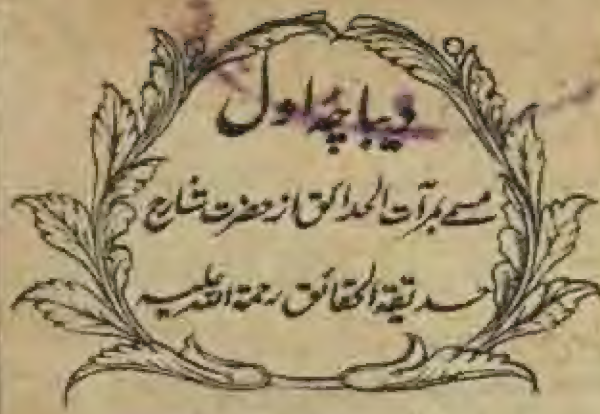 دیباچۂ اول
مسمے بمرآت الحدائق از حضرت شارح
حدیقۃ الحقائق رحمۃ اللہ علیہ